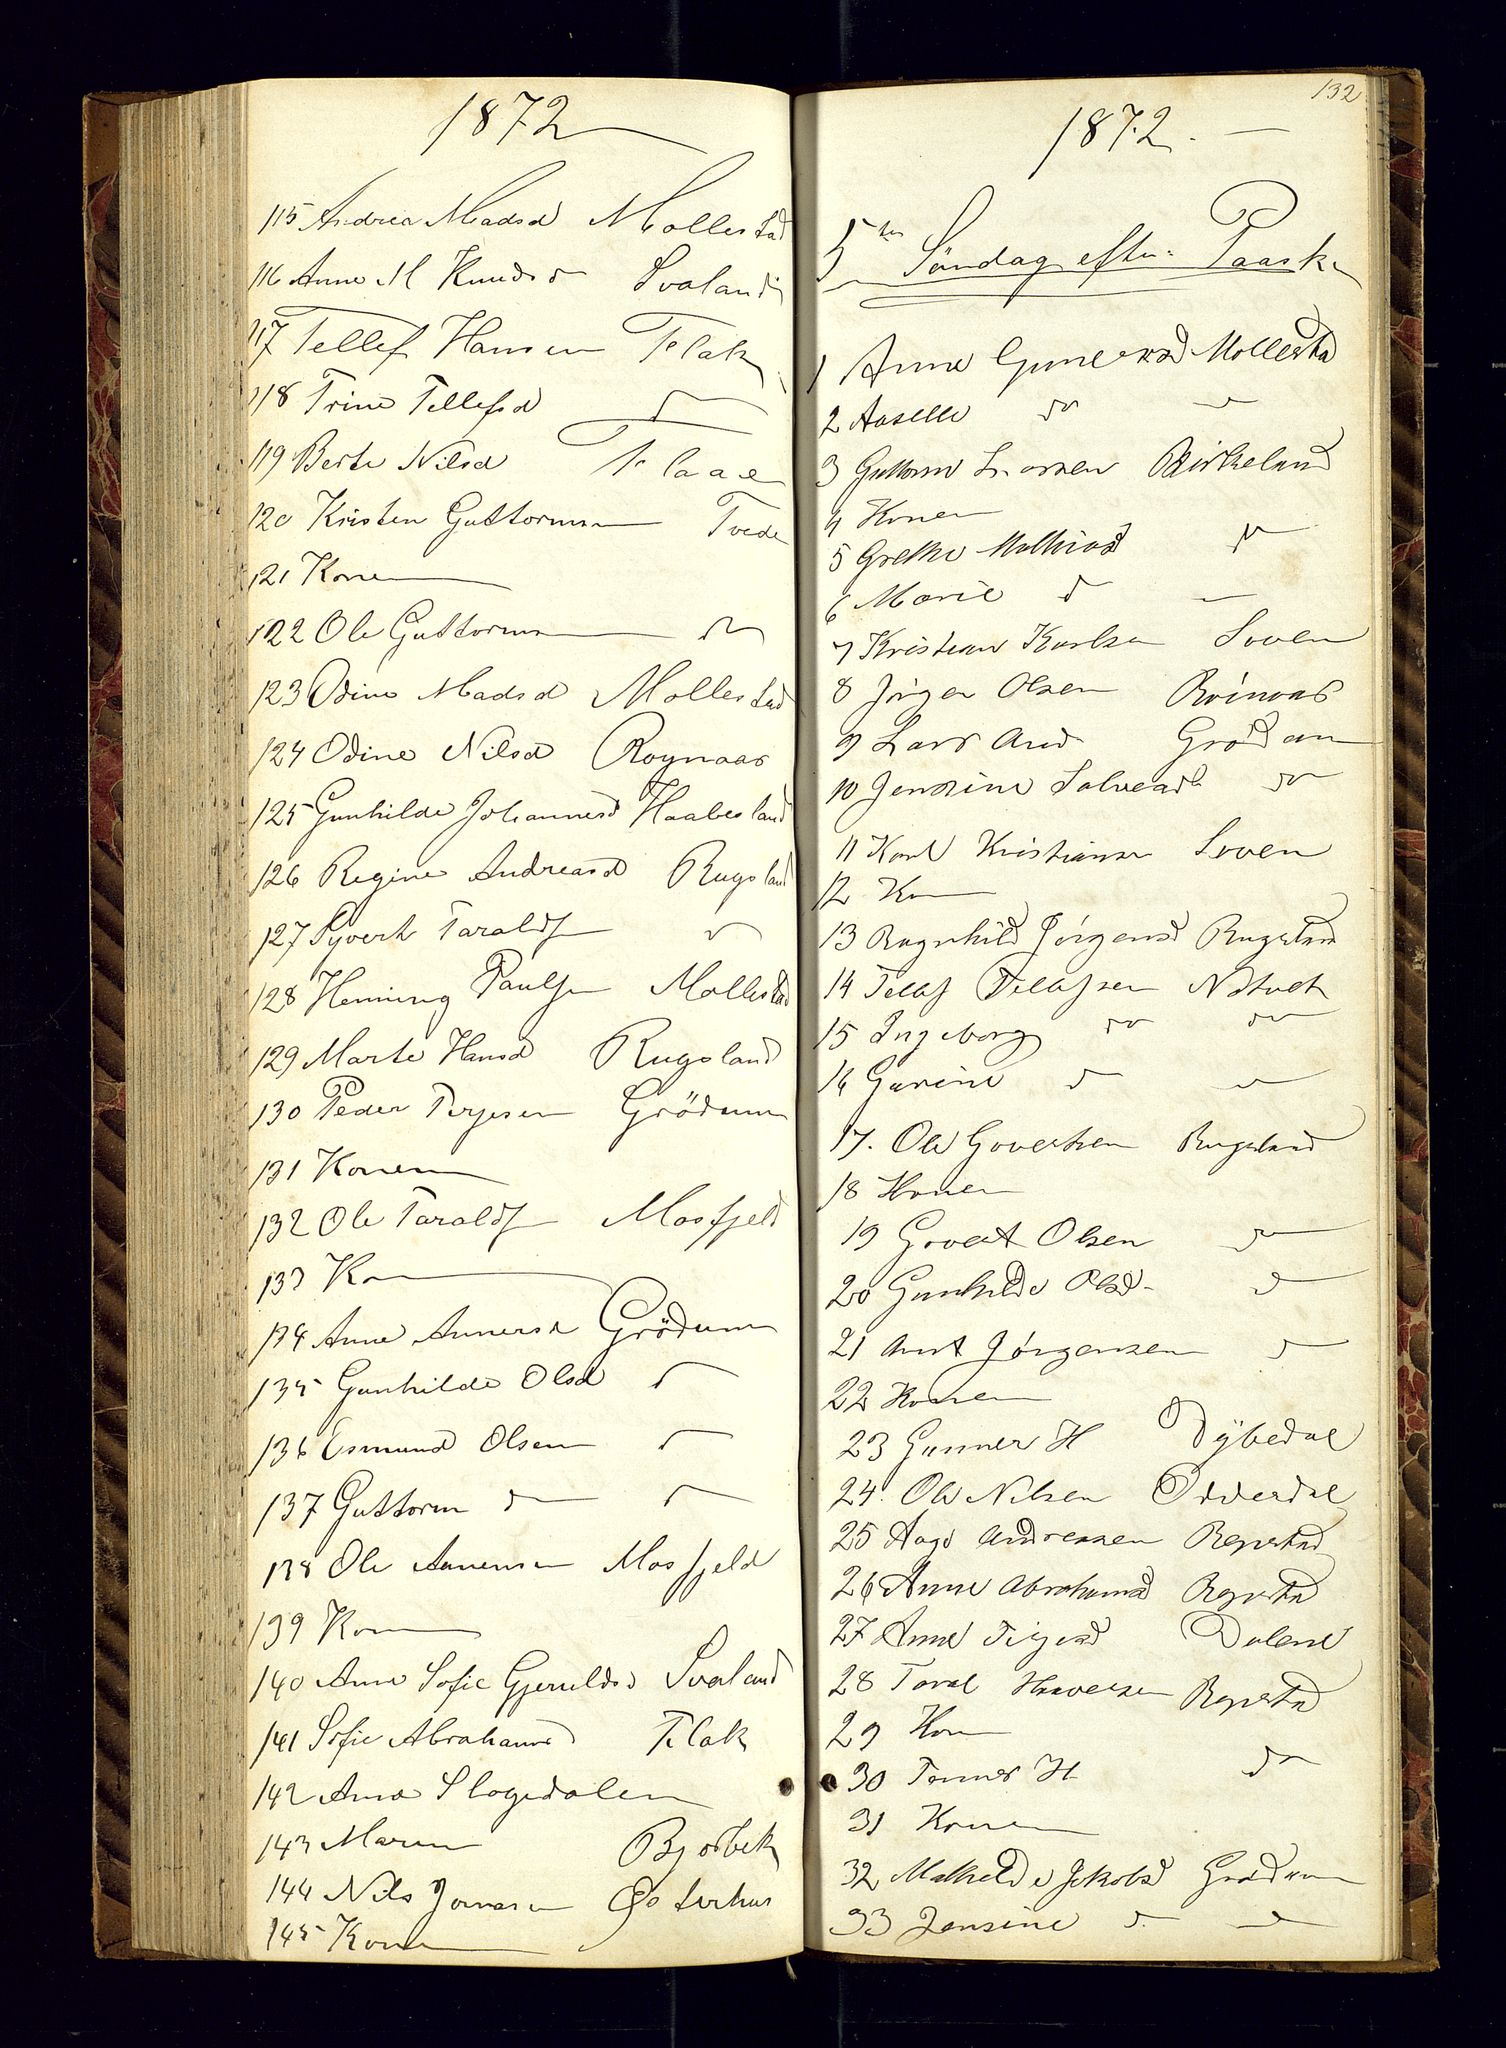 1872
115 Andrea Madsd Mollestad
116 Anne M Knudsd Svaland
117 Tellef Hansen Flak
118 Trine Tellefsd do
119 Berte Nilsd Flaae
120 Kristen Guttormsen Tvede
121 Konen
122 Ole Guttormsen do
123 Odine Madsd Mollestad
124 Odine Nilsd Roynaas
125 Gunhilde Johannesd Haabesland
126 Regine Andreasd Rugsland
127 Syvert Taraldsen do
128 Henning Paulsen Mollestad
129 Marte Hansd Rugsland
130 Peder Terjesen Grödum
131 Konen
132 Ole Taraldsen Mosfjeld
133 Kon
134 Anne Annersd Grödum
135 Gunhilde Olsd do
136 Esmund Olsen do
137 Guttorm do do
138 Ole Annensen Mosfjeld
139 Kon
140 Anne Sofie Gjeruldsd Svaland
141 Sofie Abrahamsd Flak
142 Anne Slogedalen
143 Maren Bjorbek
144 Nils Jonasen Osterhus
145 Konen
132
1872.
5te Söndag efter Paaske
1 Anne Gunersd Mollestad
2 Aaselle do
3 Guttorm Larssen Birkeland
4 Konen
5 Grethe Mathiasd do
6 Marie do
7 Kristian Karlsen Loven
8 Jörgen Olsen Roinaas
9 Lars And Grödum
10 Jensine Salvesd do
11 Karl Kristiansen Loven
12 Kon
13 Ragnhild Jörgensd Rugsland
14 Tellef Tellefsen
15 Ingeborg do do
16 Gurine do
17. Ole Govertsen Rugsland
18 Konen
19 Govert Olsen do
20 Gunhilde Olsd do
21 Arnt Jörgensen do
22 Konen
23 Gunner H Dybedal
24. Ole Nilsen Odderdal
25 Aage Andreasen Repstad
26 Anne Abrahamsd Repstad
27 Anne Terjesd Dalene
28 Taral Haaversen Repstad
29 Kon
30 Tonnes H do
31 Konen
32 Mathilde Jakobsd Grödum
33 Jensine do